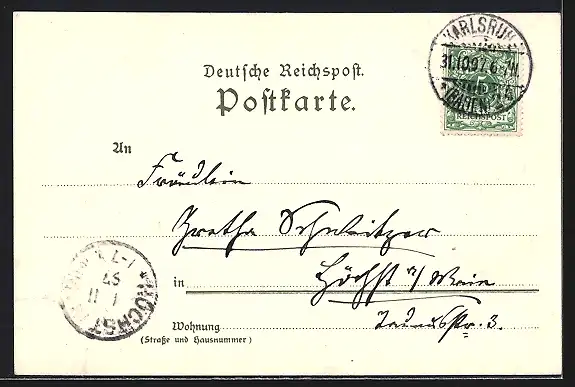 KARLSRUHE
31.10.97.6-7N.
(BADEN)
REICHSPOST
Deutsche Reichspost.
Postkarte.
An
Fräulein
Gretha Schnitzer
in Höchst a/ Main
Wohnung Taunusstr. 3.
(Straße und Hausnummer)
HÖCHST
1 11
97